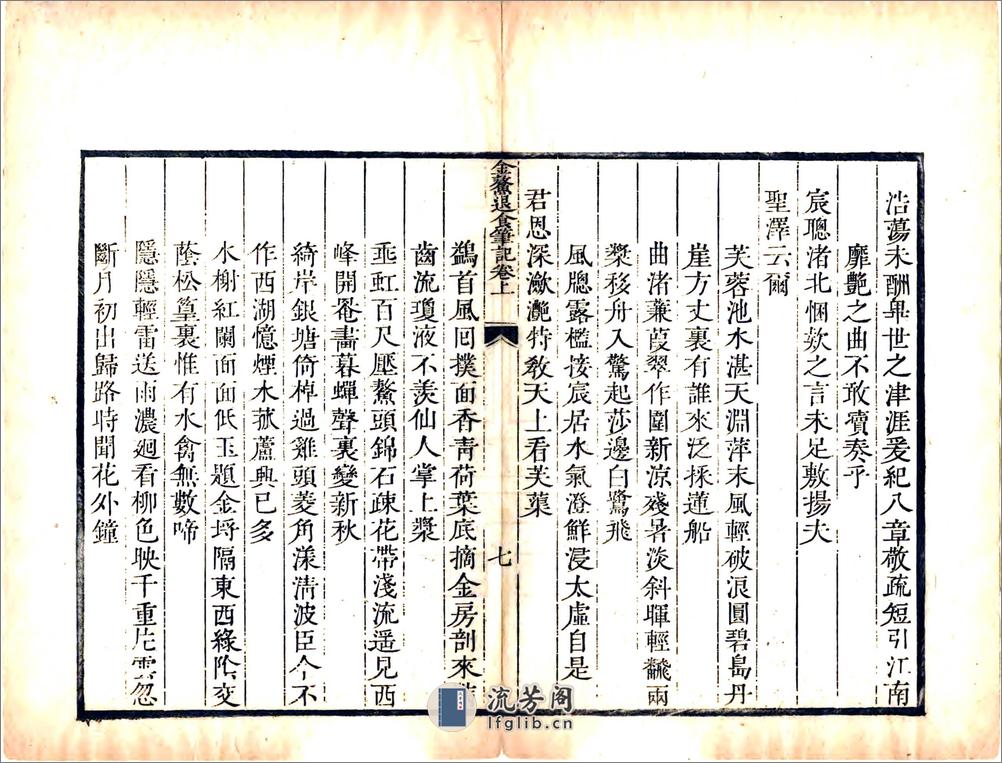 浩蕩未酬畢世之津涯爰紀八章敬疏短引江南
靡艷之曲不敢瀆奏乎
宸聰渚北悃欵之言未足敷揚夫
聖澤云爾
芙蓉池水湛天淵萍末風輕破浪圓碧島丹
崖方丈裏有誰來泛採蓮船
曲渚蒹葭翠作圍新涼殘暑淡斜暉輕飜兩
槳移舟入驚起莎邊白鷺飛
風牕露檻接宸居水氣澄鮮浸太虛自是
君恩深瀲灧特敎天上看芙蕖
金鰲退食筆記卷上
七
鷁首風回撲面香靑荷葉底摘金房剖來
齒流瓊液不羨仙人掌上漿
垂虹百尺壓鰲頭錦石疎花帶淺流遥見西
峰開罨畵暮蟬聲裏變新秋
綺岸銀塘倚棹過雞頭菱角漾淸波臣今不
作西湖憶煙水菰蘆興已多
水榭紅闌面面低玉題金埒隔東西綠隂交
蔭松篁裏惟有水禽無數啼
隱隱輕雷送雨濃廻看柳色映千重片雲忽
斷月初出歸路時聞花外鐘
流芳阁
lfglib.cn